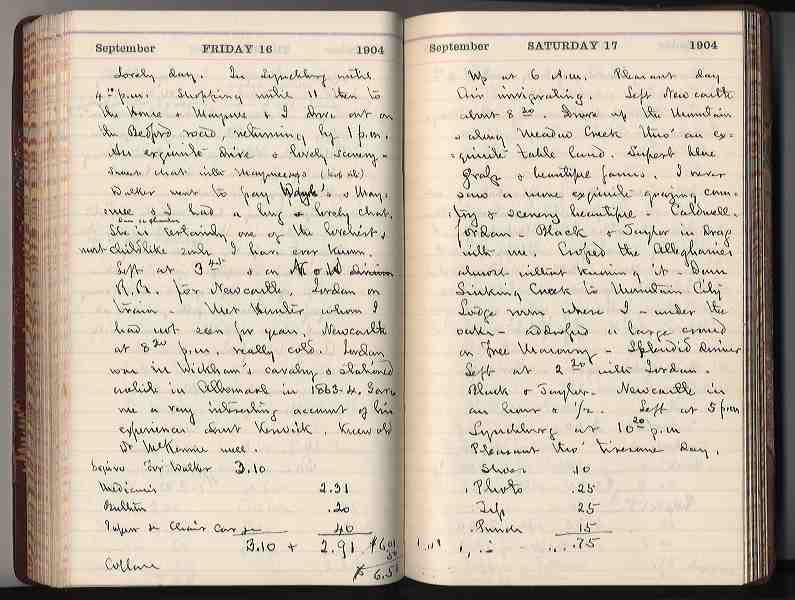 September FRIDAY 16 1904
Lovely day. In Lynchburg until
4 p.m. Shopping until 11 then to
the House & & I drove out on
the Bedford road, returning by 1 p.m.
An exquisite drive & lovely scenery
Sweet chat with
Walker went to pay & May-
& I had a long & lovely chat.
She is certainly one of the loveliest &
most childlike souls I have ever known.
Left at 3 & on N & W
R.R. for Newcastle. Jordan on
train - Met Hunter whom I
had not seen for years. Newcastle
at 8 20 p.m. really cold. Jordan
was in Wickham's cavalry & stationed
while in Albemarle in 1863-4. Gave
me a very interesting account of his
experiences about Keswick. Knew old
Dr McKennie well.
for Walker 3.10
Medicines 2.31
.20
Chair Car 40
3.10 + 2.91 $6.01
September SATURDAY 17 1904
Up at 6 A.m. Pleasant day
Air invigorating. Left Newcastle
about 8 20. Drove up the Mountain
& along Meadow Creek thro' an ex-
quisite table land. Superb blue
grass & beautiful farms. I never
saw a more exquisite grazing coun-
try & scenery beautiful - Caldwell -
Jordan - Black & Taylor in drag
with me. Crossed the Alleghanies
almost without knowing it - Down
Sinking Creek to Mountain City
Lodge room where I - under the
oaks - addressed a large crowd
on Free Masonry - Splendid dinner
Left at 2 20 with Jordan.
Black & Taylor. Newcastle in
an hour & 1/2. Left at 5 p.m
Lynchburg at 10 20 p.m
Pleasant tho' tiresome day.
Shoes .10
Photo .25
Tip 25
15
.75